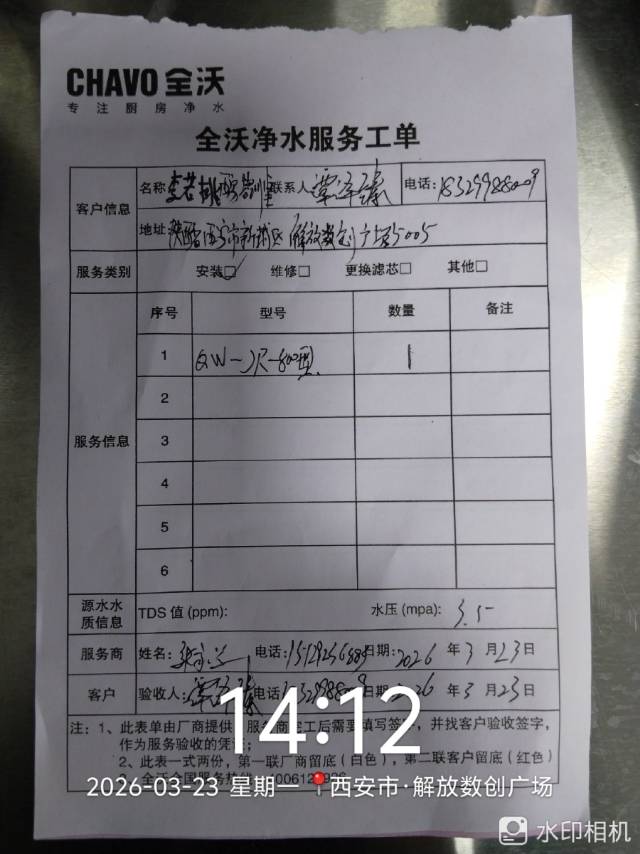 CHAVO 全沃
专注厨房净水
全沃净水服务工单
客户信息
名称
联系人
电话: 18329988009
地址 陕西西安市新城区解放数创广场5005
服务类别 安装☑ 维修□ 更换滤芯□ 其他□
服务信息
序号 型号 数量 备注
1 QW-JR-800型 1
2
3
4
5
6
源水水质信息 TDS 值 (ppm): 水压 (mpa): 3.5
服务商 姓名: 电话: 日期: 2026 年 3 月 23 日
客户 验收人: 电话 日期 年 3 月 23 日
注：1、此表单由厂商提供 服务商完工后需要填写签 并找客户验收签字，
作为服务验收的凭证
2、此表一式两份，第一联厂商留底（白色），第二联客户留底（红色）
全沃全国服务
14:12
2026-03-23 星期一 西安市·解放数创广场
水印相机